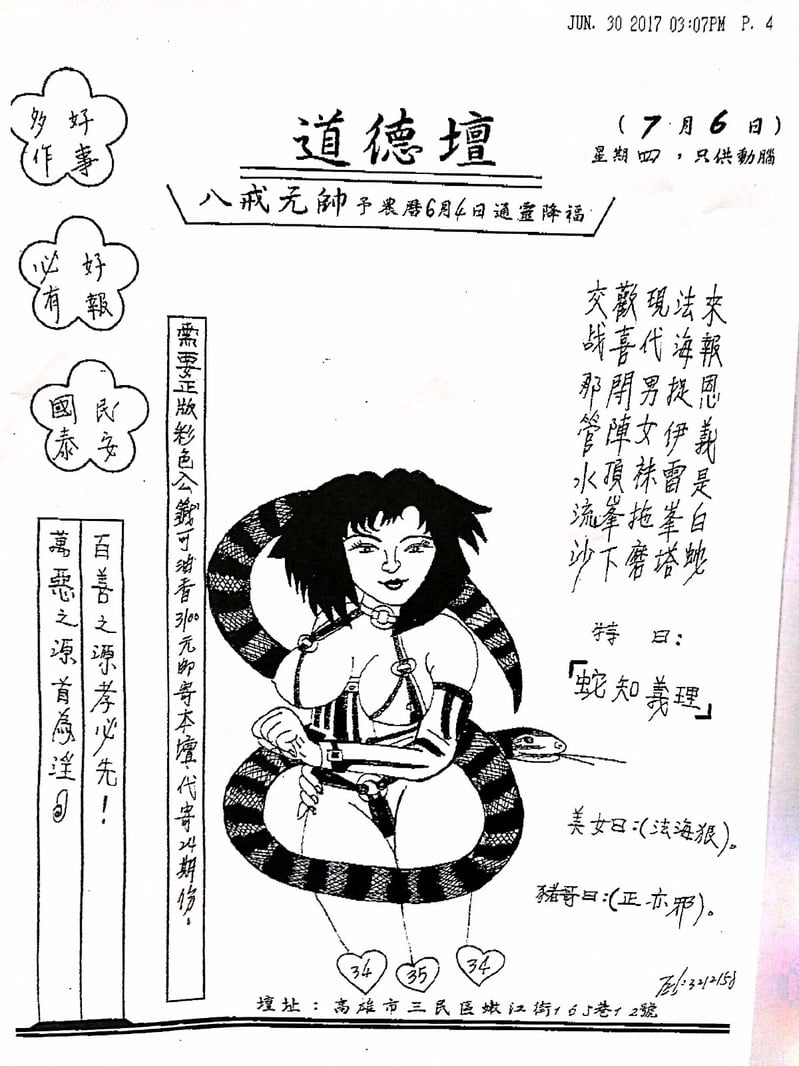 JUN. 30 2017 03:07PM P. 4
道德壇
(7月6日)
星期四，只供動腦
八戒元帥予農曆6月4日通靈降福
好事
多作
好報
必有
民安
國泰
百善之源孝必先！
萬惡之源首為淫
需要正版彩色公籤可油香3100元郵寄本壇，代寄24期份。
來報恩義是白蛇
法海捉伊雷峯塔
現代男女袜拖磨
歡喜開陣頂峯下
交战那管水流沙
特曰：
「蛇知義理」
美女曰:(法海狠)。
豬哥曰:(正亦邪)。
34
35
34
Tel:3212158
壇址：高雄市三民區嫩江街165巷12號